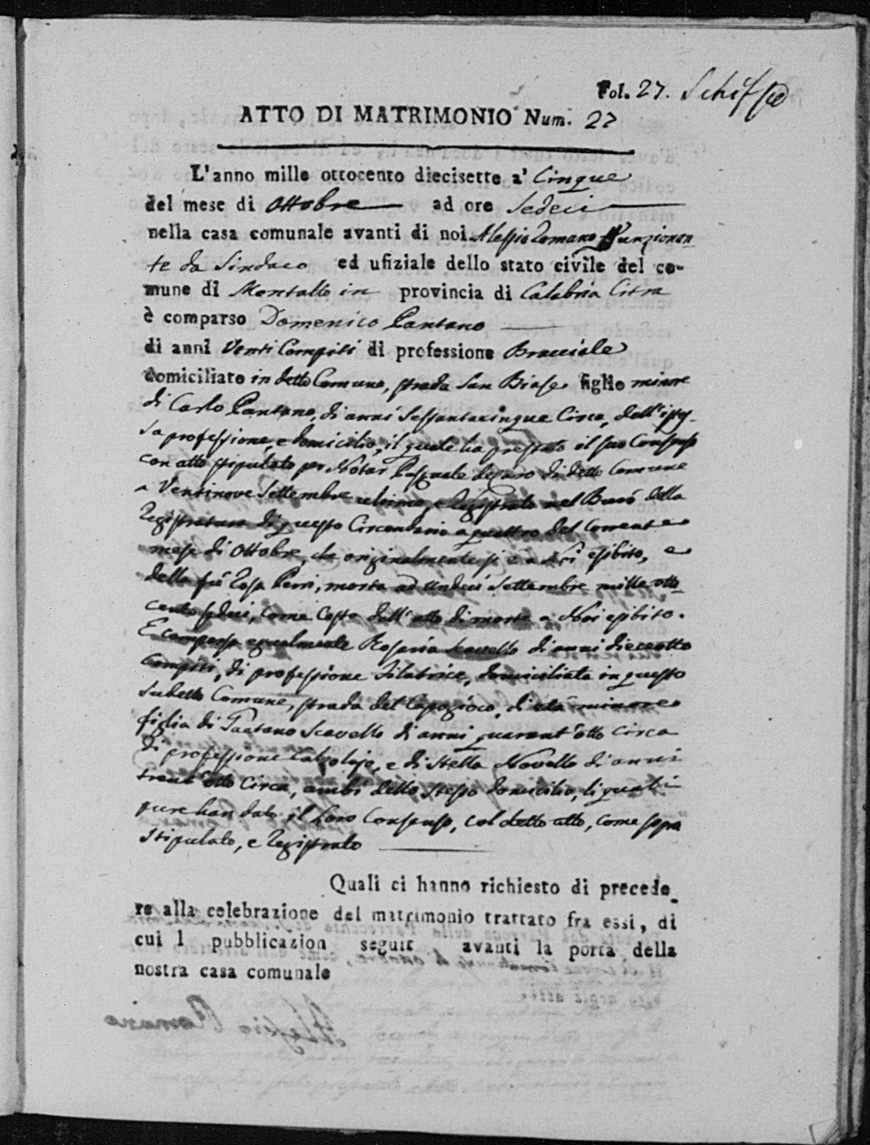 Fol. 27.
ATTO DI MATRIMONIO Num. 27
L'anno mille ottocento diecisette a' Cinque
del mese di Ottobre ad ore Sedeci
nella casa comunale avanti di noi Alessio Romano Funzionan-
te da Sindaco ed ufiziale dello stato civile del co-
mune di Montalto in provincia di Calabria Citra
è comparso Domenico Pantano
di anni Venti Compiti di professione Bracciale
domiciliato in detto Comune, strada San Biase figlio minore
di Carlo Pantano, di anni Sessantacinque Circa, dell'istes-
sa professione, e domicilio, il quale ha prestato il suo Consenso
con atto stipulato per Notar Pasquale di detto Comune
a Ventinove Settembre ultimo, e Registrato nel Burò della
Registratura di questo Circondario a quattro del Corrente
mese di Ottobre, che originalmente si è a Noi esibito, e
della fu Rosa Perri, morta ad Undeci Settembre mille otto-
cento sedeci, come Costa dall'atto di morte a Noi esibito.
E comparsa egualmente Rosaria Scavello di anni dieceotto
Compiti, di professione Filatrice, domiciliata in questo
Sudetto Comune, strada del di età minore
figlia di Gaetano Scavello di anni quarant'otto Circa
di professione Calzolajo, e di Stella Novello di anni
trent'otto Circa, ambi dello stesso domicilio, li quali
pure han dato il loro Consenso, col detto atto, come sopra
Stipulato, e Registrato
Quali ci hanno richiesto di precede
re alla celebrazione del matrimonio trattato fra essi, di
cui l pubblicazion seguit avanti la porta della
nostra casa comunale